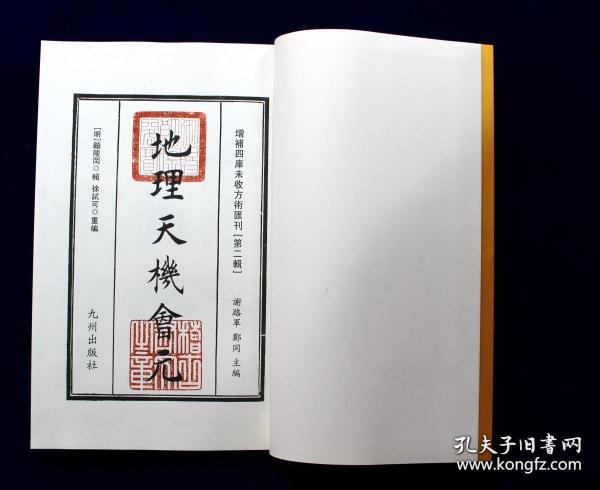 增補四庫未收方術匯刊[第二輯]
謝路軍 鄭同 主編
地理天機會元
[明]顧陵岡◎輯 徐試可◎重編
九州出版社
孔夫子旧书网
www.kongfz.com